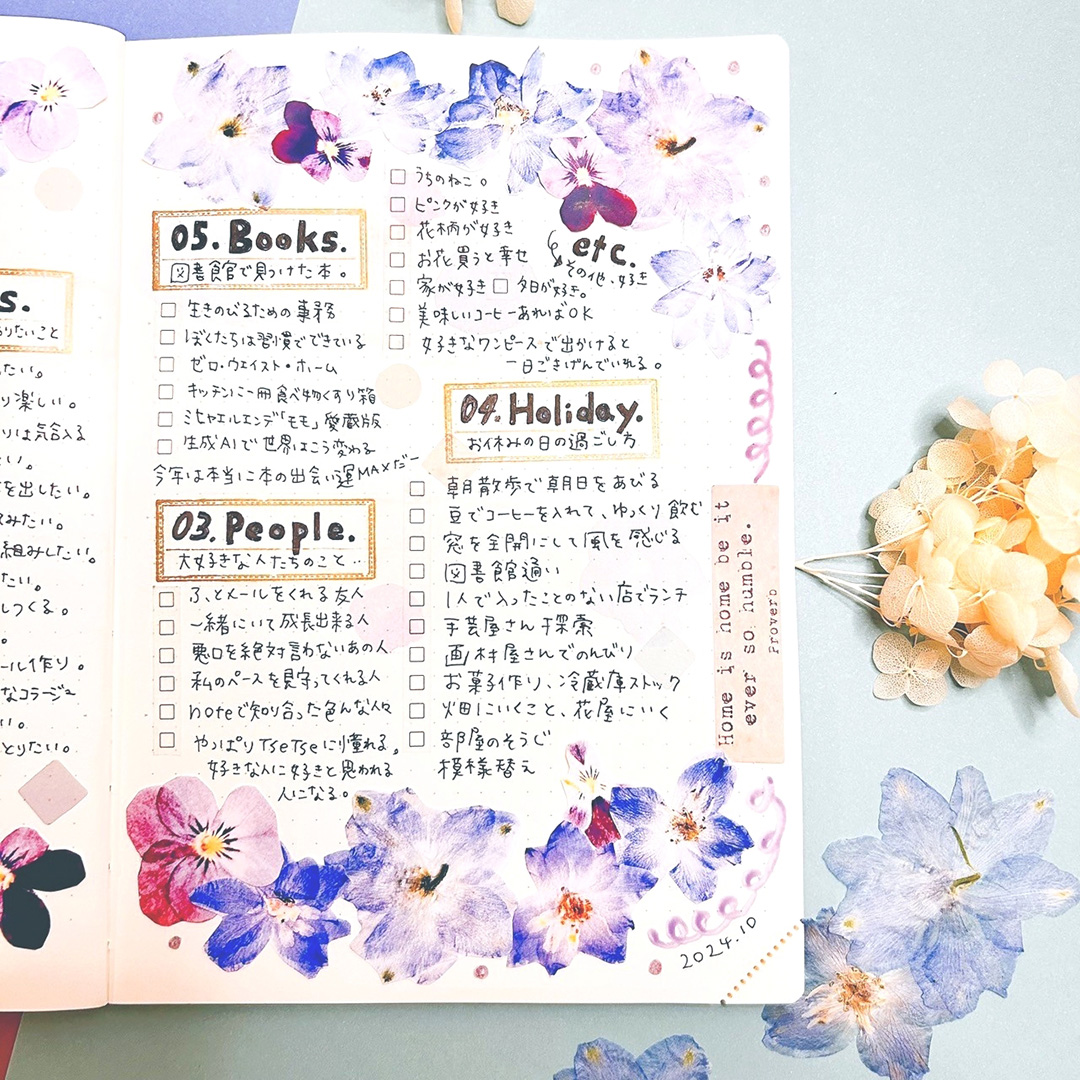 s.
りたいこと
たい。
り楽しい。
りは気合入る
い。
を出したい。
みたい。
組みしたい。
たい。
しつくる。
。
ール作り。
なコラージュ
い。
とりたい。
05. Books.
図書館で見つけた本。
□ 生きのびるための事務
□ ぼくたちは習慣でできている
□ ゼロ・ウェイスト・ホーム
□ キッチンに一冊食べ物くすり箱
□ ミヒャエルエンデ「モモ」愛蔵版
□ 生成AIで世界はこう変わる
今年は本当に本の出会い運MAXだー
03. People.
大好きな人たちのこと‥
□ ふっとメールをくれる友人
□ 一緒にいて成長出来る人
□ 悪口を絶対言わないあの人
□ 私のペースを見守ってくれる人
□ noteで知り合った色んな人々
□ やっぱりTseTseに憧れる。
好きな人に好きと思われる
人になる。
□ うちのねこ。
□ ピンクが好き
□ 花柄が好き
□ お花買うと幸せ
□ 家が好き □ 夕日が好き。
□ 美味しいコーヒーあればOK
□ 好きなワンピースで出かけると
一日ごきげんでいれる。
etc.
その他、好き
04. Holiday.
お休みの日の過ごし方
□ 朝散歩で朝日をあびる
□ 豆でコーヒーを入れて、ゆっくり飲む
□ 窓を全開にして風を感じる
□ 図書館通い
□ 1人で入ったことのない店でランチ
□ 手芸屋さん探索
□ 画材屋さんでのんびり
□ お菓子作り、冷蔵庫ストック
□ 畑にいくこと、花屋にいく
□ 部屋のそうじ
模様替え
Home is nome be it
ever so numble.
Provero
2024.10